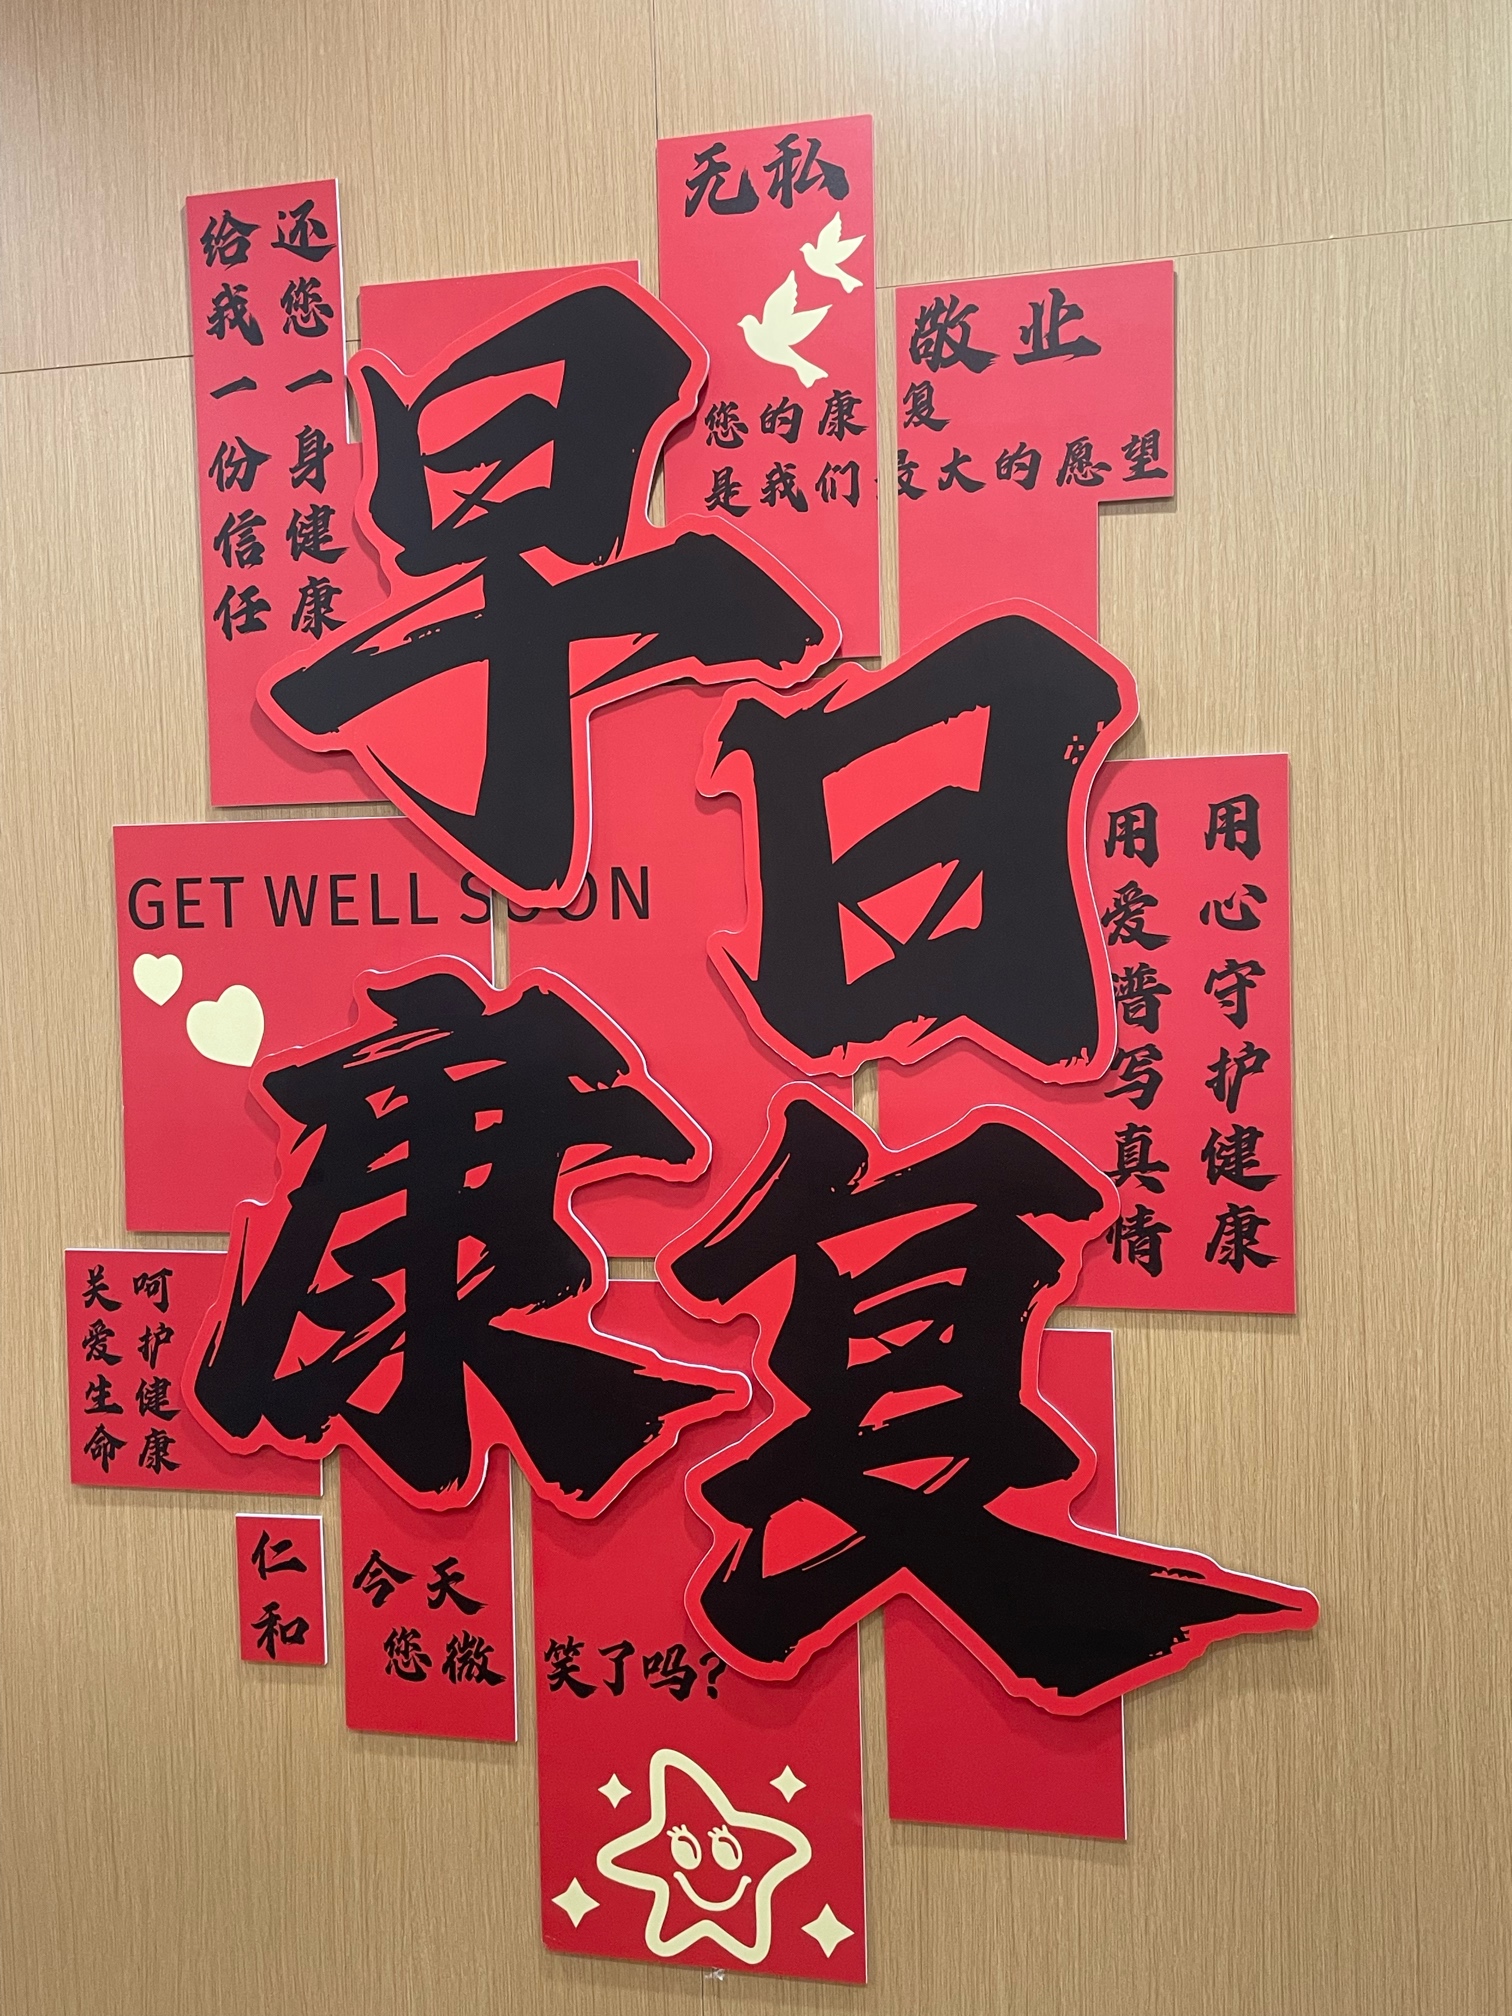 给我一份信任
还您一身健康
无私
您的康复
是我们最大的愿望
敬业
早日
康复
GET WELL SOON
用爱谱写真情
用心守护健康
关爱生命
呵护健康
仁和
今天
您微笑了吗?